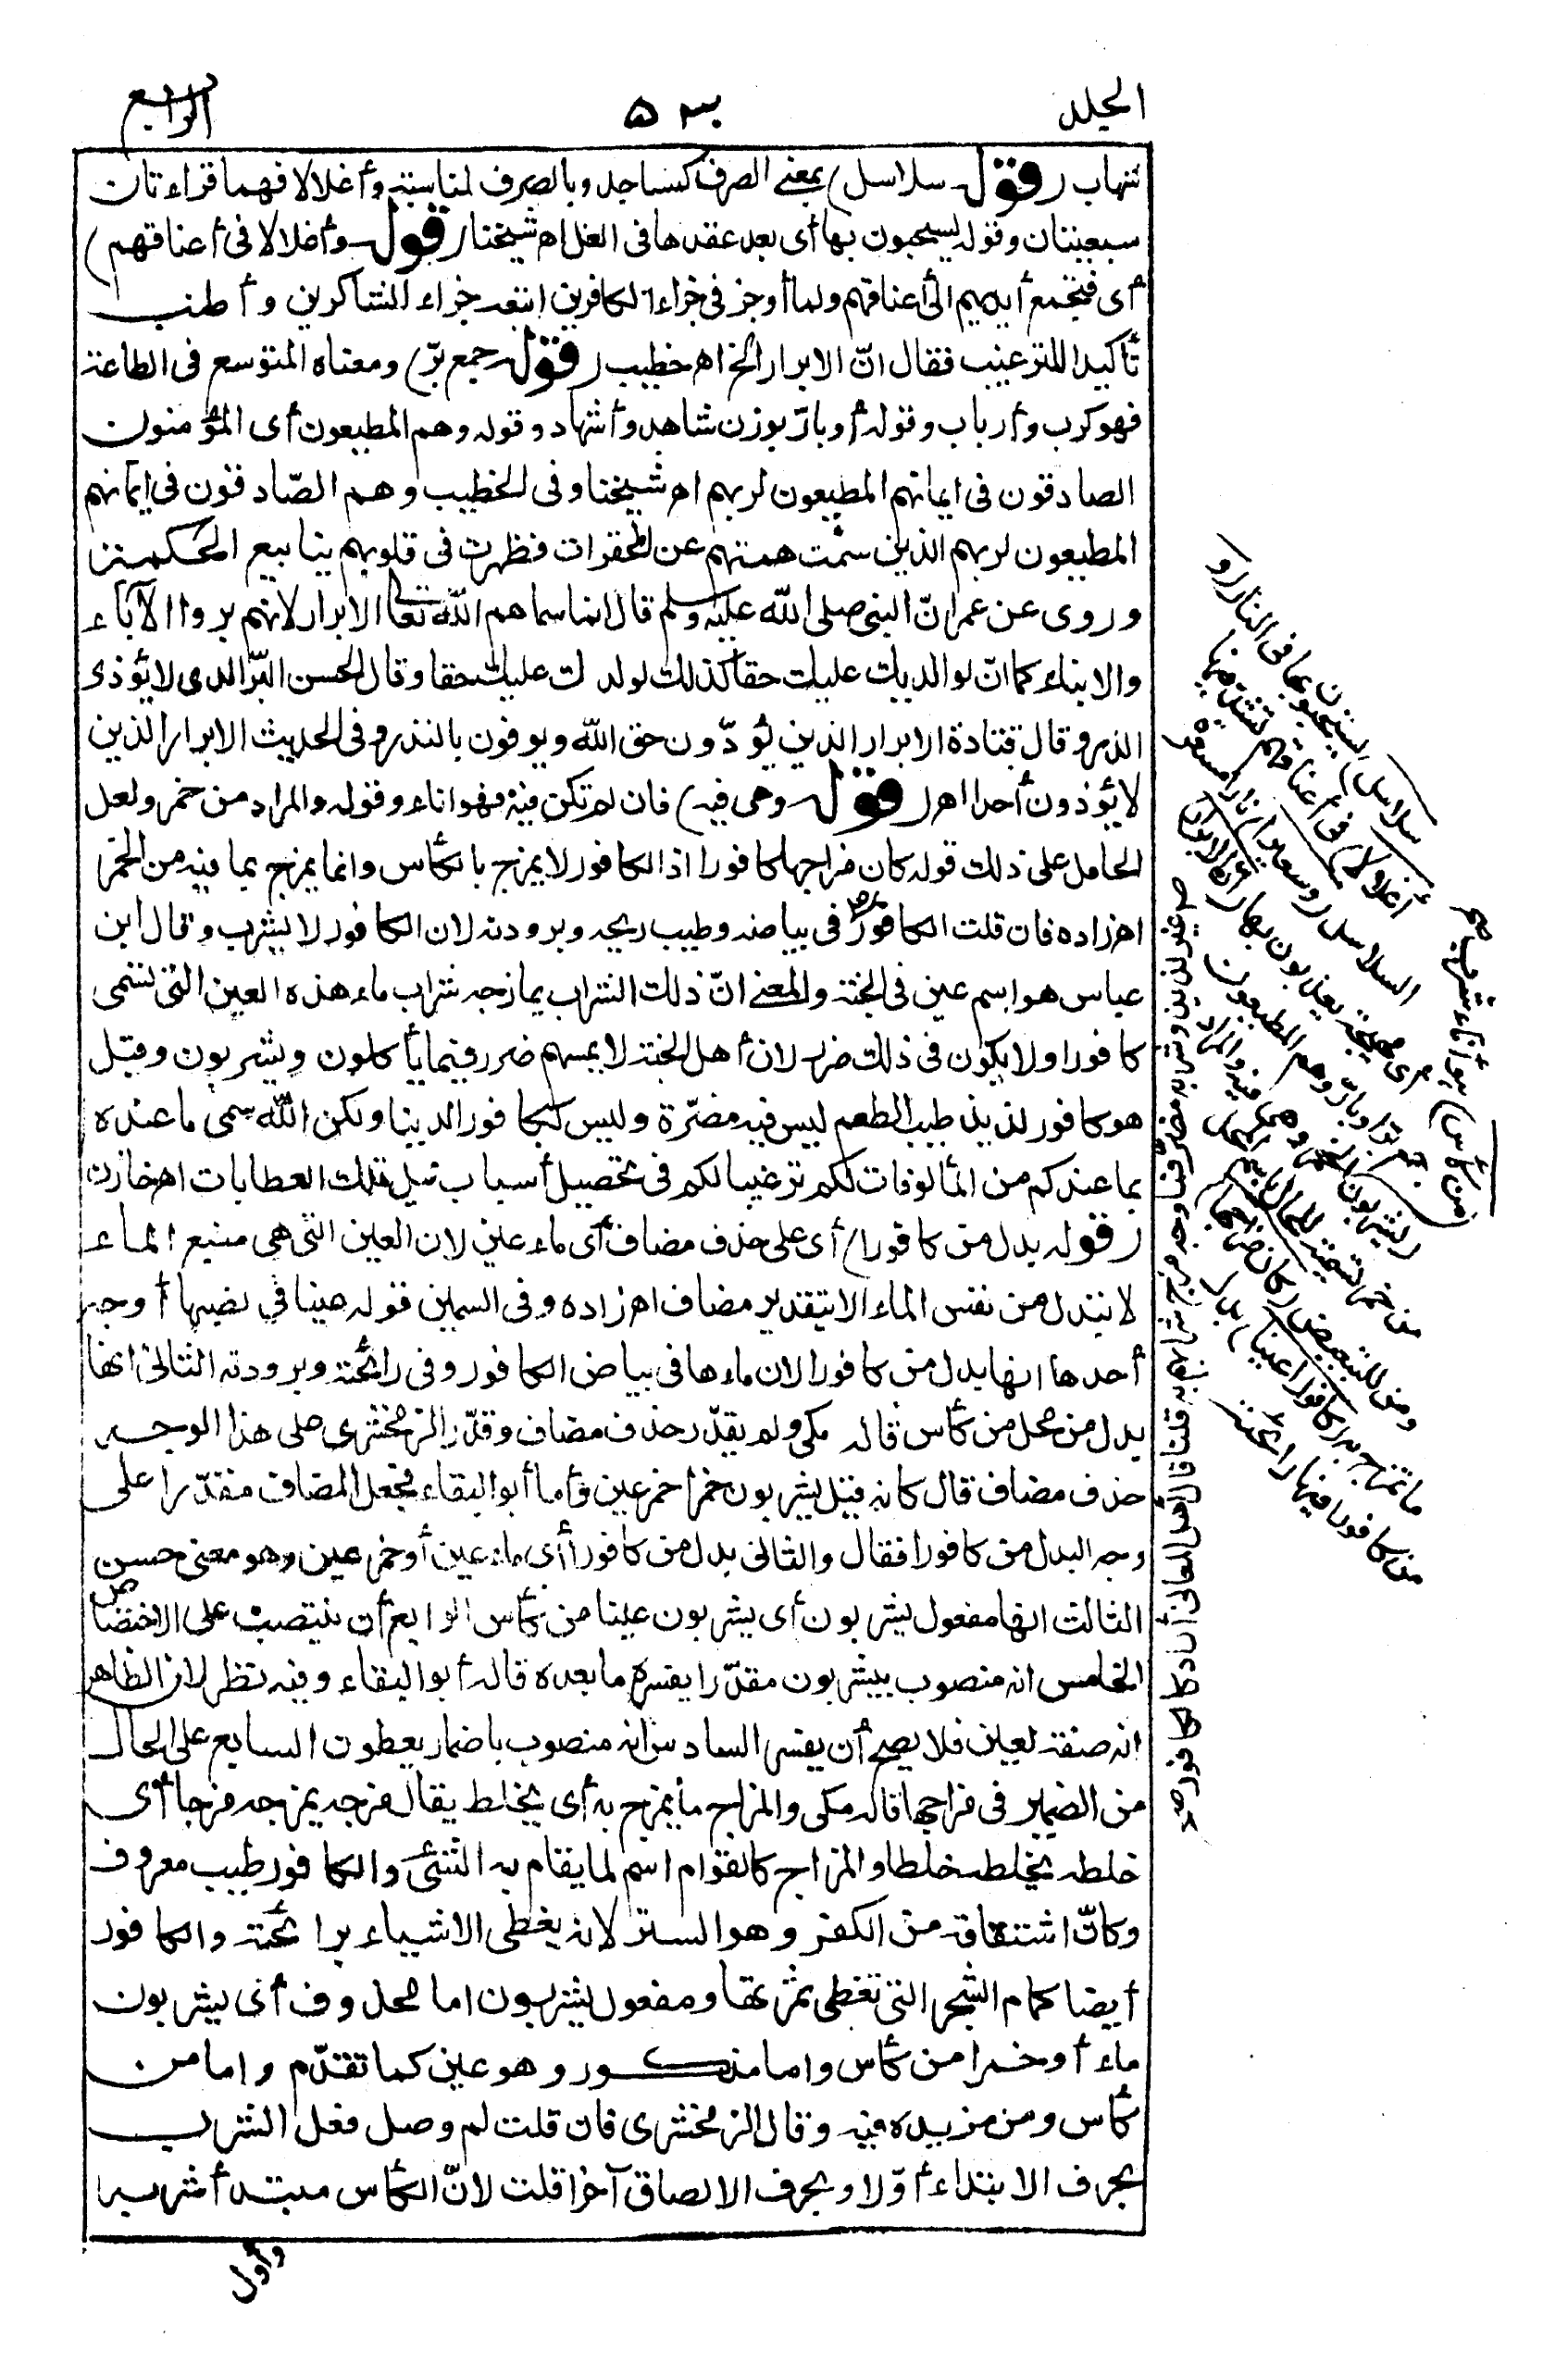 الجلد
الرابع
شهاب (قوله سلاسل) بمعنى الصرف كمساجد وبالصرف لمناسبة وأغلالا فهما قراءتان
سبعيتان وقوله يسحبون بها أى بعد عقدها فى الغل اه شيخنا (قوله وأغلالا فى أعناقهم)
أى فتجمع أيديهم الى أعناقهم ولما أوجز فى جزاء الكافرين اتبعه جزاء الشاكرين وأطنب
تأكيدا للترغيب فقال انّ الابرار الخ اه خطيب (قوله جمع برّ) ومعناه المتوسع فى الطاعة
فهو كرب وأرباب وقوله أو بارّ بوزن شاهد وأشهاد وقوله وهم المطيعون أى المؤمنون
الصادقون فى ايمانهم المطيعون لربهم اه شيخنا وفى الخطيب وهم الصّادقون فى ايمانهم
المطيعون لربهم الذين سمت همتهم عن المحقرات فظهرت فى قلوبهم ينابيع الحكمة
وروى عن عمر انّ النبى صلى الله عليه وسلم قال انما سماهم الله تعالى الابرار لانهم بروا الآباء
والابناء كما انّ لوالديك عليك حقا كذلك لولدك عليك حقا وقال الحسن البرّ الذى لا يؤذى
الذر وقال قتادة الابرار الذين يؤدّون حق الله ويوفون بالنذر وفى الحديث الابرار الذين
لا يؤذون أحدا اه (قوله وهى فيه) فان لم تكن فيه فهو اناء وقوله والمراد من خمر ولعل
الحامل على ذلك قوله كان مزاجها كافورا اذ الكافور لا يمزج بالكأس وانما يمزج بما فيه من الخمر
اه زاده فان قلت الكافور فى بياضه وطيب ريحه وبرودته لان الكافور لا يشرب وقال ابن
عباس هو اسم عين فى الجنة والمعنى انّ ذلك الشراب يمازجه شراب ماء هذه العين التى تسمى
كافورا ولا يكون فى ذلك ضرر لان أهل الجنة لا يمسهم ضرر فيما يأكلون ويشربون وقيل
هو كافور لذيذ طيب الطعم ليس فيه مضرّة وليس ككافور الدنيا ولكن الله سمى ما عنده
بما عندكم من المألوفات لكم ترغيبا لكم فى تحصيل أسباب نيل تلك العطايات اه خازن
(قوله بدل من كافورا) أى على حذف مضاف أى ماء عين لان العين التى هى منبع الماء
لا تبدل من نفس الماء الا بتقدير مضاف اه زاده وفى السمين قوله عينا فى نصبها أوجه
أحدها انها بدل من كافورا لان ماءها فى بياض الكافور وفى رائحته وبرودته الثانى انها
بدل من محل من كأس قاله مكى ولم يقدّر حذف مضاف وقدّر الزمخشرى على هذا الوجه
حذف مضاف قال كانه قيل يشربون خمرا خمر عين وأما أبو البقاء فجعل المضاف مقدّرا على
وجه البدل من كافورا فقال والثانى بدل من كافورا أى ماء عين أو خمر عين وهو معنى حسن
الثالث انها مفعول يشربون أى يشربون عينا من كأس الرابع أن ينتصب على الاختصاص
الخامس انه منصوب بيشربون مقدّرا يفسره ما بعده قاله أبو البقاء وفيه نظر لان الظاهر
انه صفة لعين فلا يصح أن يفسر السادس انه منصوب باضمار يعطون السابع على الحال
من الضمير فى مزاجها قاله مكى والمزاج ما يمزج به أى يخلط يقال مزجه يمزجه مزجا أى
خلطه يخلطه خلطا والمزاج كالقوام اسم لما يقام به الشئ والكافور طيب معروف
وكانّ اشتقاقه من الكفر وهو الستر لانه يغطى الاشياء برائحته والكافور
أيضا كمام الشجر التى تغطى ثمرتها ومفعول يشربون اما محذوف أى يشربون
ماء أو خمرا من كأس واما مذكور وهو عين كما تقدّم واما من
كأس ومن مزيده فيه وقال الزمخشرى فان قلت لم وصل فعل الشرب
بحرف الابتداء أوّلا وبحرف الالصاق آخرا قلت لانّ الكأس مبتدأ شربه
وأول